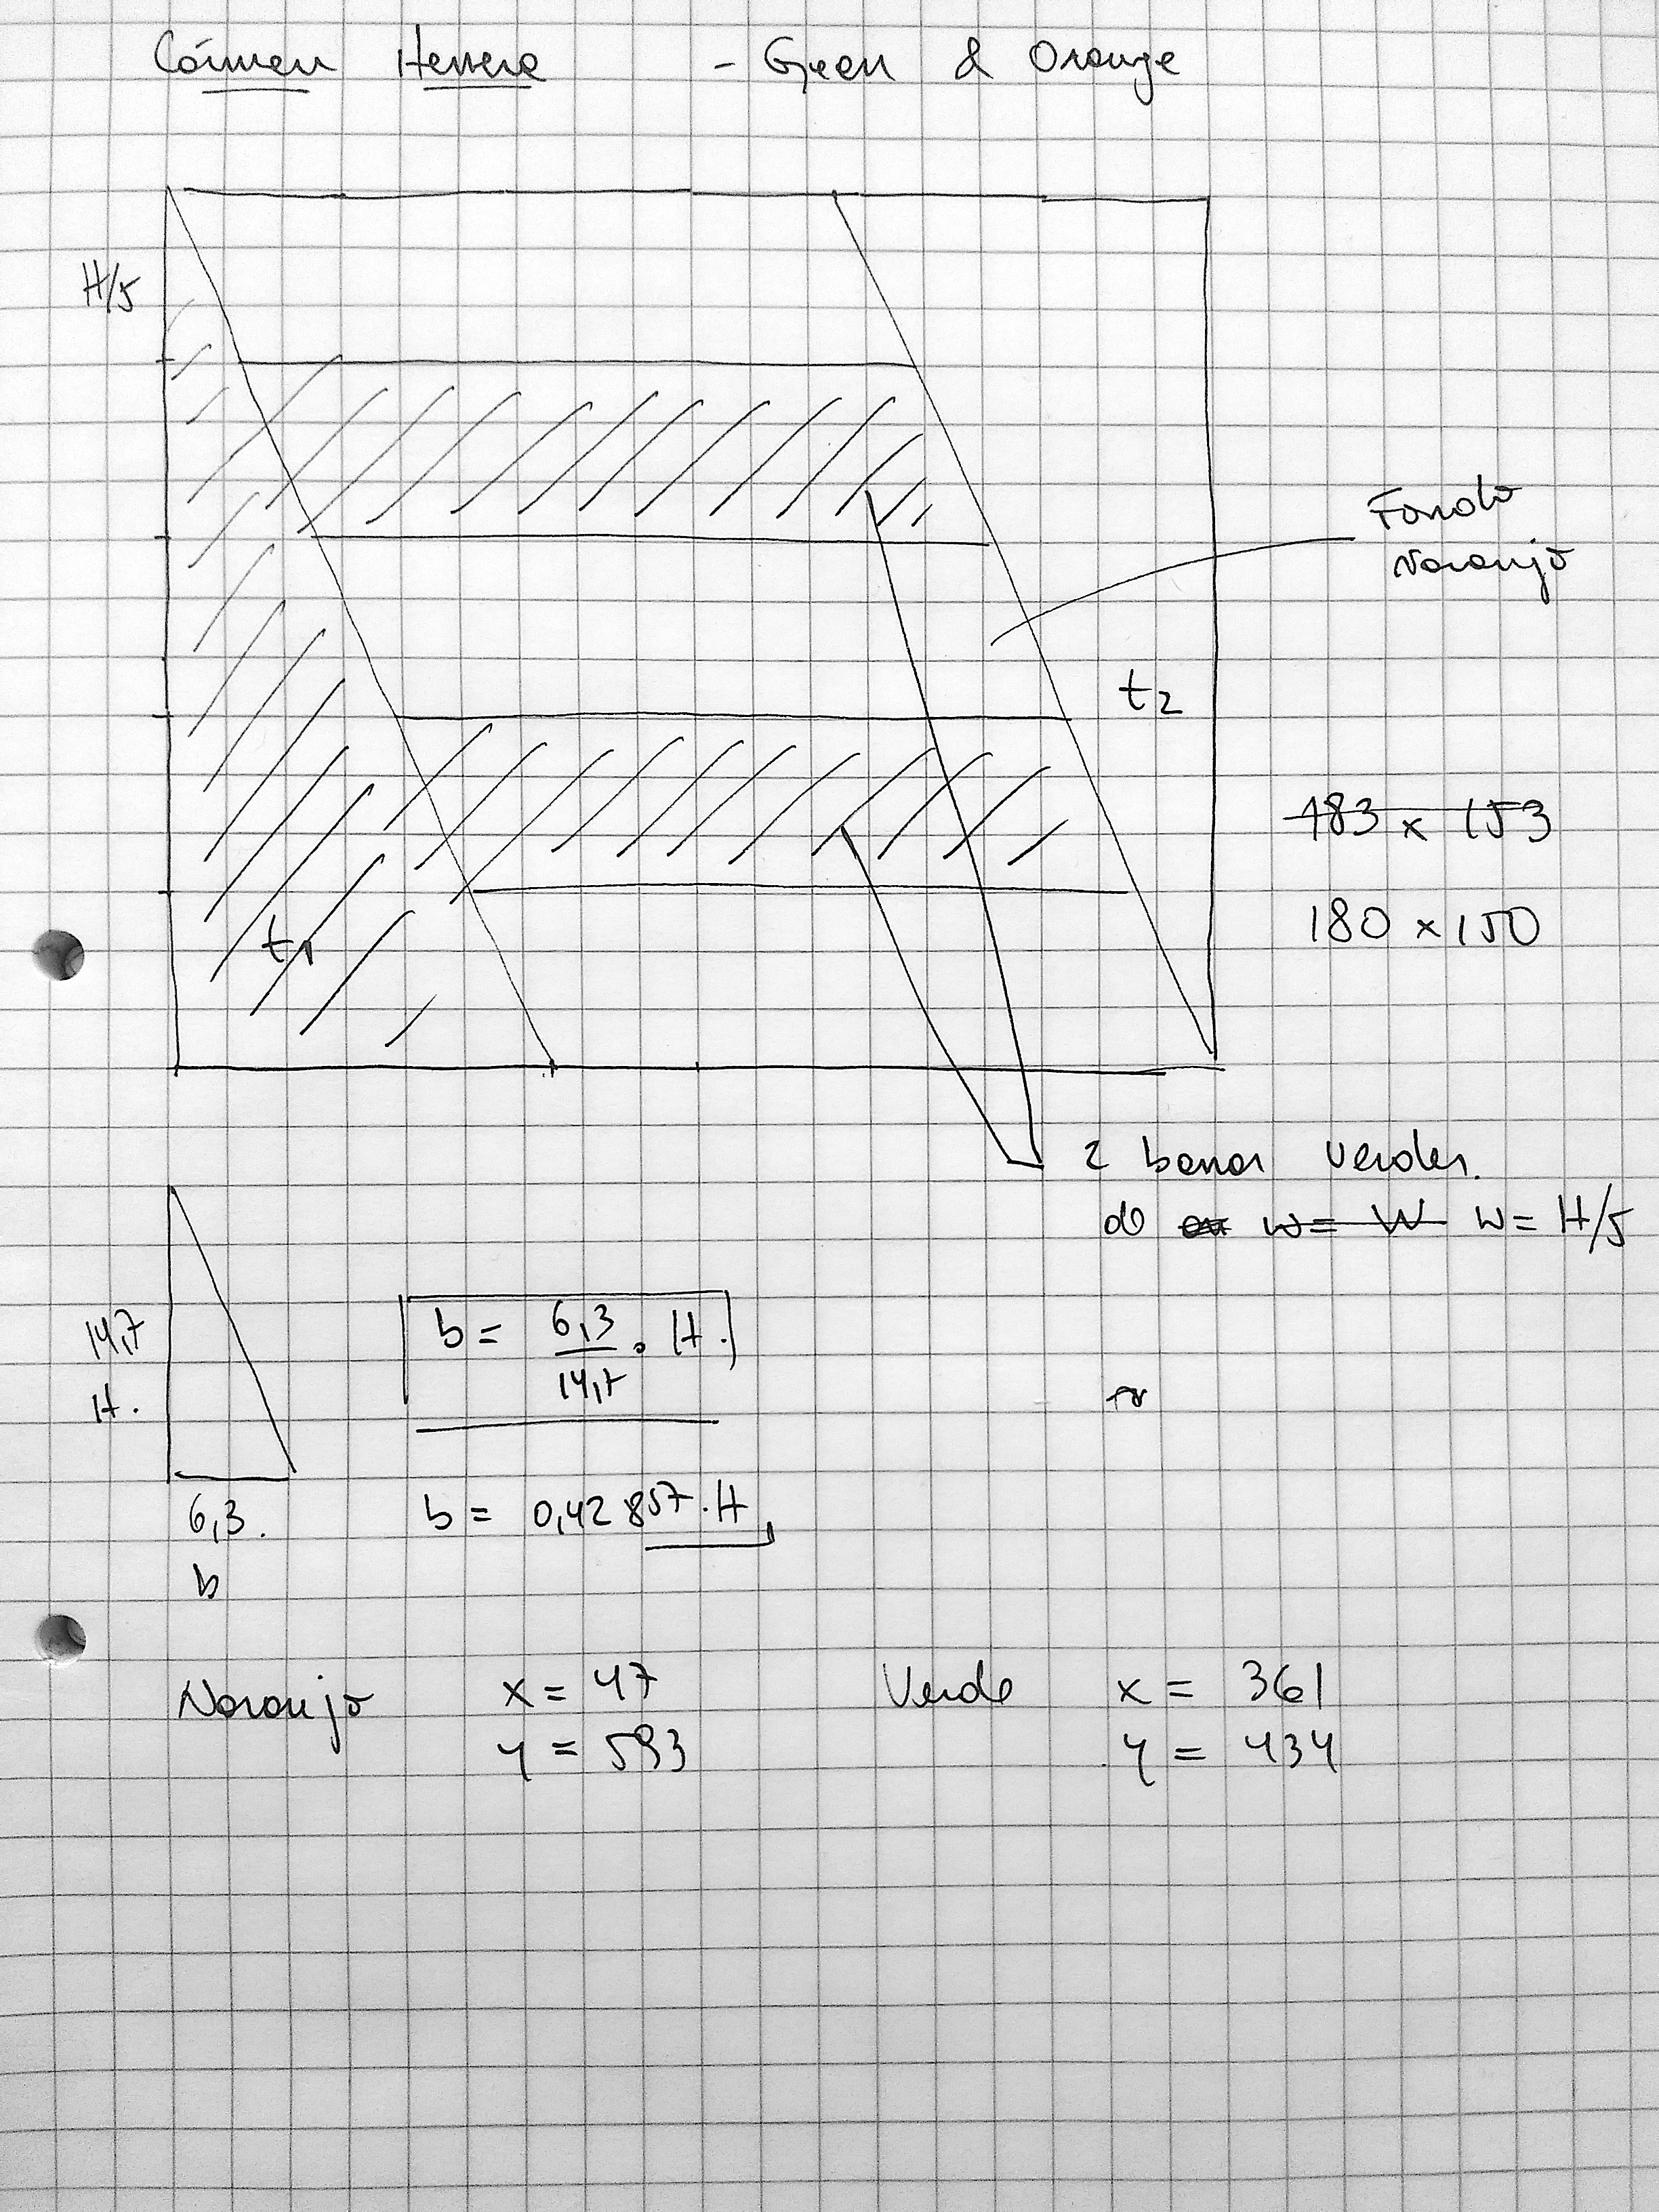 Cármen Herrera - Green & Orange
H/5
Fondo
Naranja
t2
183 x 153
180 x 150
t1
2 barras verdes.
de w = W w = H/5
14,7
H.
b = 6,3 / 14,7 . H.
6,3.
b
b = 0,42857.H
Naranja x = 47 Verde x = 361
y = 593 y = 434